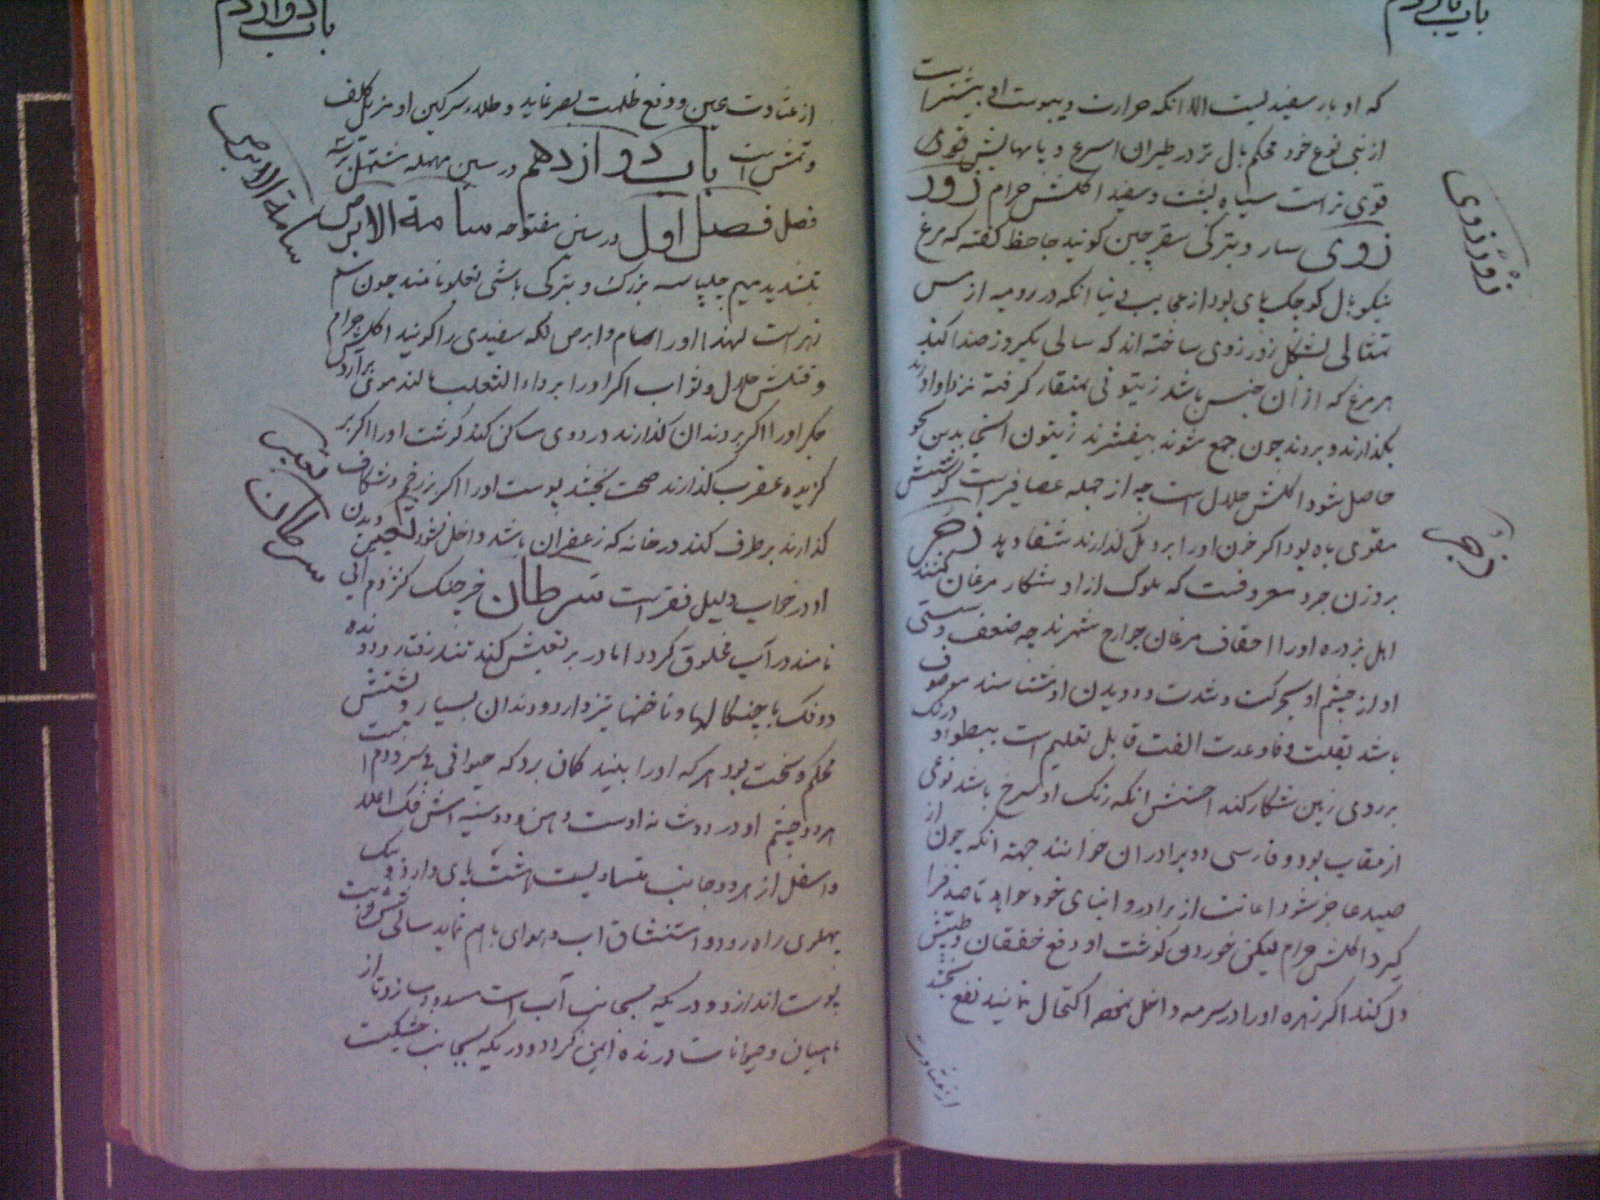 باب یازدهم
که او بار سفید نیست الا انکه حرارت و یبوست او بیشتر است
از بنی نوع خود محکم بال تر در طیران اسرع و پابهایش قوی
قوی تر است سیاه پشت و سفید اکلش حرام زور
زوی سار و بترکی سقرچین کویند جاحظ کفته که مرغ
نیکو بال کوچک پای بود از عجایب دنیا انکه در رومیه از مس
تمثالی بشکل زور زوی ساخته اند که سالی یکروز صدا کند
هر مرغ که از آن جنس باشد زیتونی بمنقار کرفته نزد او اورند
بکذارند و بروند چون جمع شوند بیفشرند زیتون انجا بدین نحو
حاصل شود اکلش حلال است چه از جمله عصافیر است کوشتش
مقوی باه بود اکر خون اورا بر دمل کذارند شفا دهد زجر
بر وزن جرد معروفست که ملوک از او شکار مرغان کنند
اهل بزدره اورا اخفاف مرغان جوارح شمرند چه ضعف و سستی
او از چشم او بحرکت و شدت و دویدن او شناسند موصوف
باشد بقلت وفا و عدت الفت قابل تعلیم است ببطو او درنک
بر روی زمین شکار کند احسنش انکه رنک او سرخ باشد نوعی
از عقاب بود و فارسی دو برادران خوانند جهة انکه چون از
صید عاجز شود اعانت از برادر و ابنای خود خواهد تا صید فرا
کیرد اکلش حرام لیکن خوردن کوشت او دفع خفقان و طپش
دل کند اکر زهره اورا در سرمه داخل نموده اکتحال نمایند نفع بخشد
از غشاوت
زور زوی
زجر
باب دوازدهم
از غشاوت عین و دفع ظلمت بصر نماید و طلاء سرکین او مزیل کلف
و نمش است باب دوازدهم در سین مهمله مشتمل بر سه
فصل فصل اول در سین مفتوحه سامة الابرص
بتشدید میم چلپاسه بزرک و بترکی باشی نامند چون سم
زهر است لهذا اورا سام و ابرص لکه سفیدی را کویند اکلش حرام
و قتلش حلال و ثواب اکر اورا بر داء الثعلب مالند موی برارد
جکر اورا اکر بر دندان کذارند درد وی ساکن کند کوشت اورا اکر بر
کزیده عقرب کذارند صحت بخشد پوست اورا اکر بر زخم و شکاف
کذارند بر طرف کند در خانه که زعفران باشد داخل نشود تعبیر دیدن
او در خواب دلیل فقر است سرطان خرچنک کژدم آبی
نامند در آب مخلوق کردد اما در بر تعیش کند تند رفتار و دونده
دو فک با چنکالها و ناخنها تیز دارد و دندان بسیار و پشتش
محکم و سخت بود هر که اورا بیند کمان برد که حیوانی بی سر و دم است
هر دو چشم او در دوشانه اوست دهن و در سینه اش فک اعلا
و اسفل از هر دو جانب متساویست هشت پای دارد و بیک
پهلوی راه رود و استنشاق آب و هوای باهم نماید سالی شش نوبت
پوست اندازد و دریکه بجانب آب است مسدود سازد تا از
ماهیان و حیوانات درنده ایمن کردد و دریکه بجانب خشکیست
سامة الابرص
تعبیر
سرطان